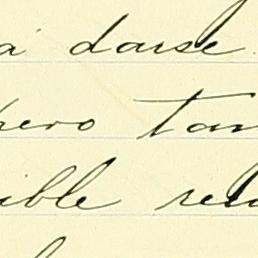 á darse
pero tan
ible re